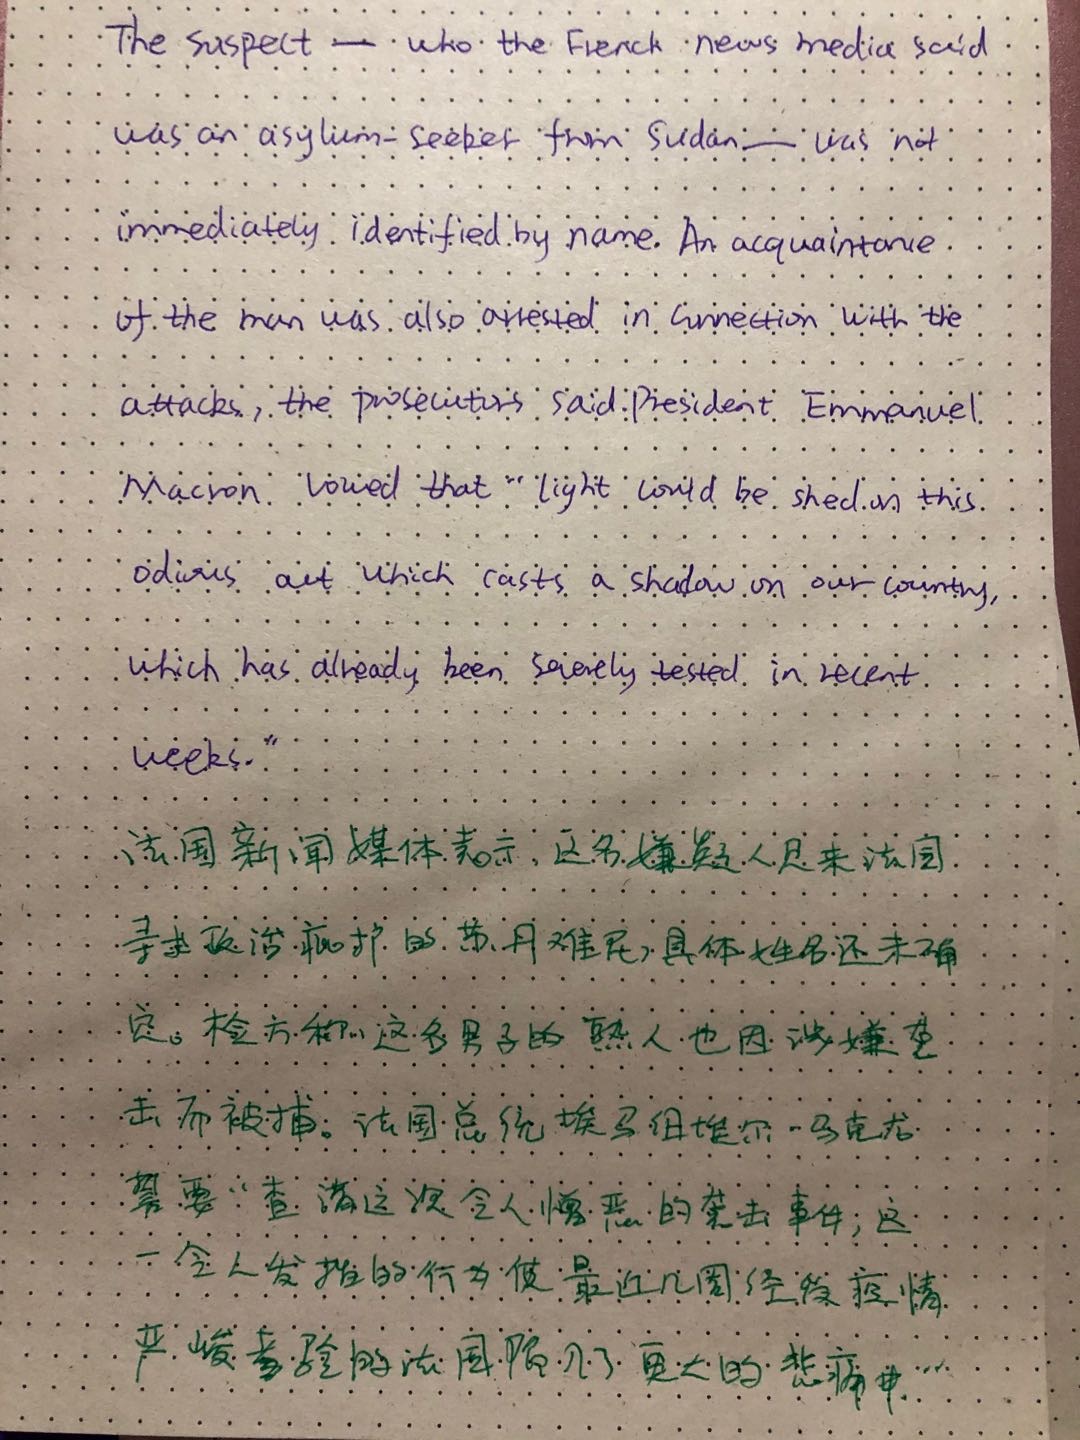 The suspect — who the French news media said
was an asylum-seeker from Sudan — was not
immediately identified by name. An acquaintance
of the man was also arrested in connection with the
attacks, the prosecutors said. President Emmanuel
Macron vowed that "light could be shed on this
odious act which casts a shadow on our country,
which has already been severely tested in recent
weeks."
法国新闻媒体表示，这名嫌疑人是来法国
寻求政治庇护的苏丹难民，具体姓名还未确
定。检方称这名男子的熟人也因涉嫌袭
击而被捕。法国总统埃马纽埃尔-马克龙
誓要"查清这次令人憎恶的袭击事件，这
一令人发指的行为使最近几周经受疫情
严峻考验的法国陷入了更大的悲痛中"